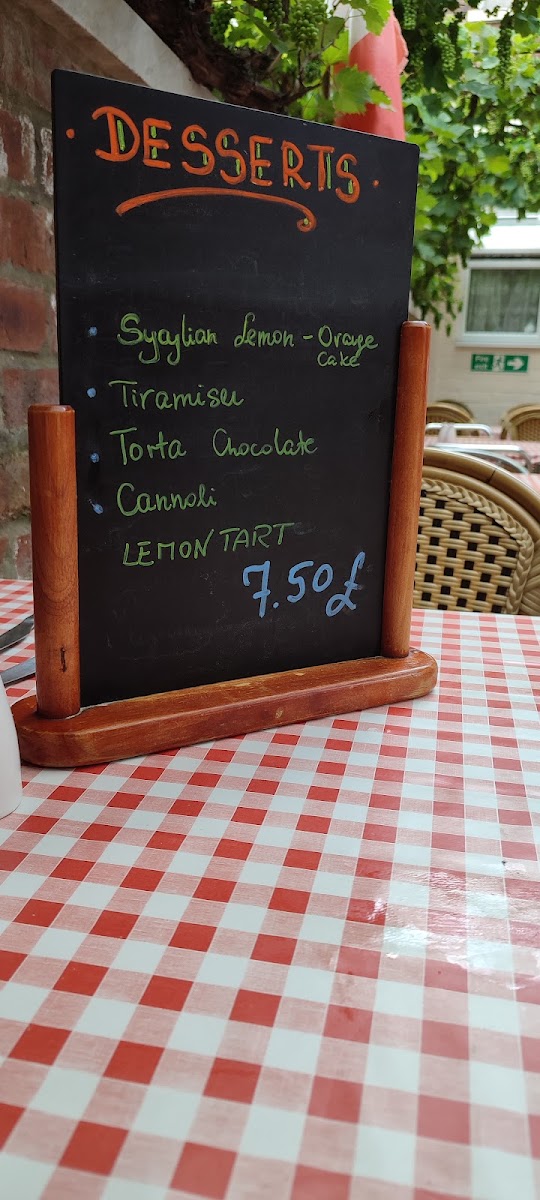 • DESSERTS •
• Sycylian Lemon - Orange
Cake
• Tiramisu
• Torta Chocolate
• Cannoli
LEMON TART
7.50£
Fire
exit